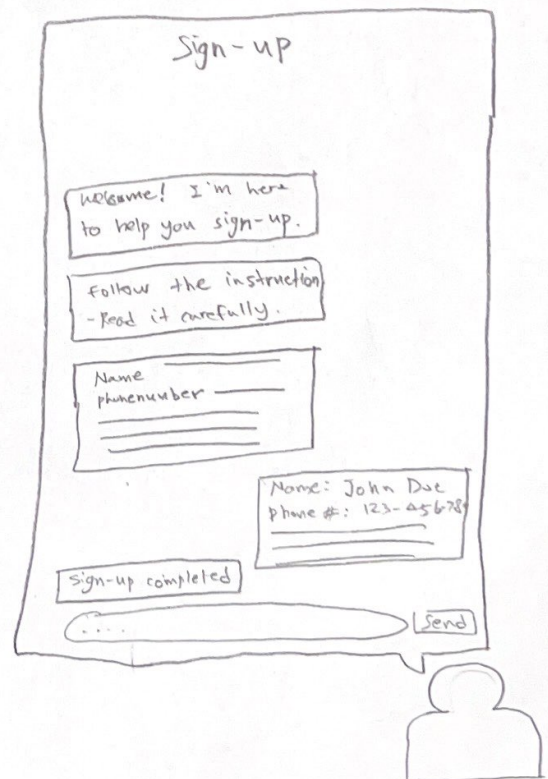 Sign-up
Welcome! I'm here
to help you sign-up.
Follow the instruction
-Read it carefully.
Name
phonenumber
Name: John Doe
phone #: 123-45678
sign-up completed
....
Send